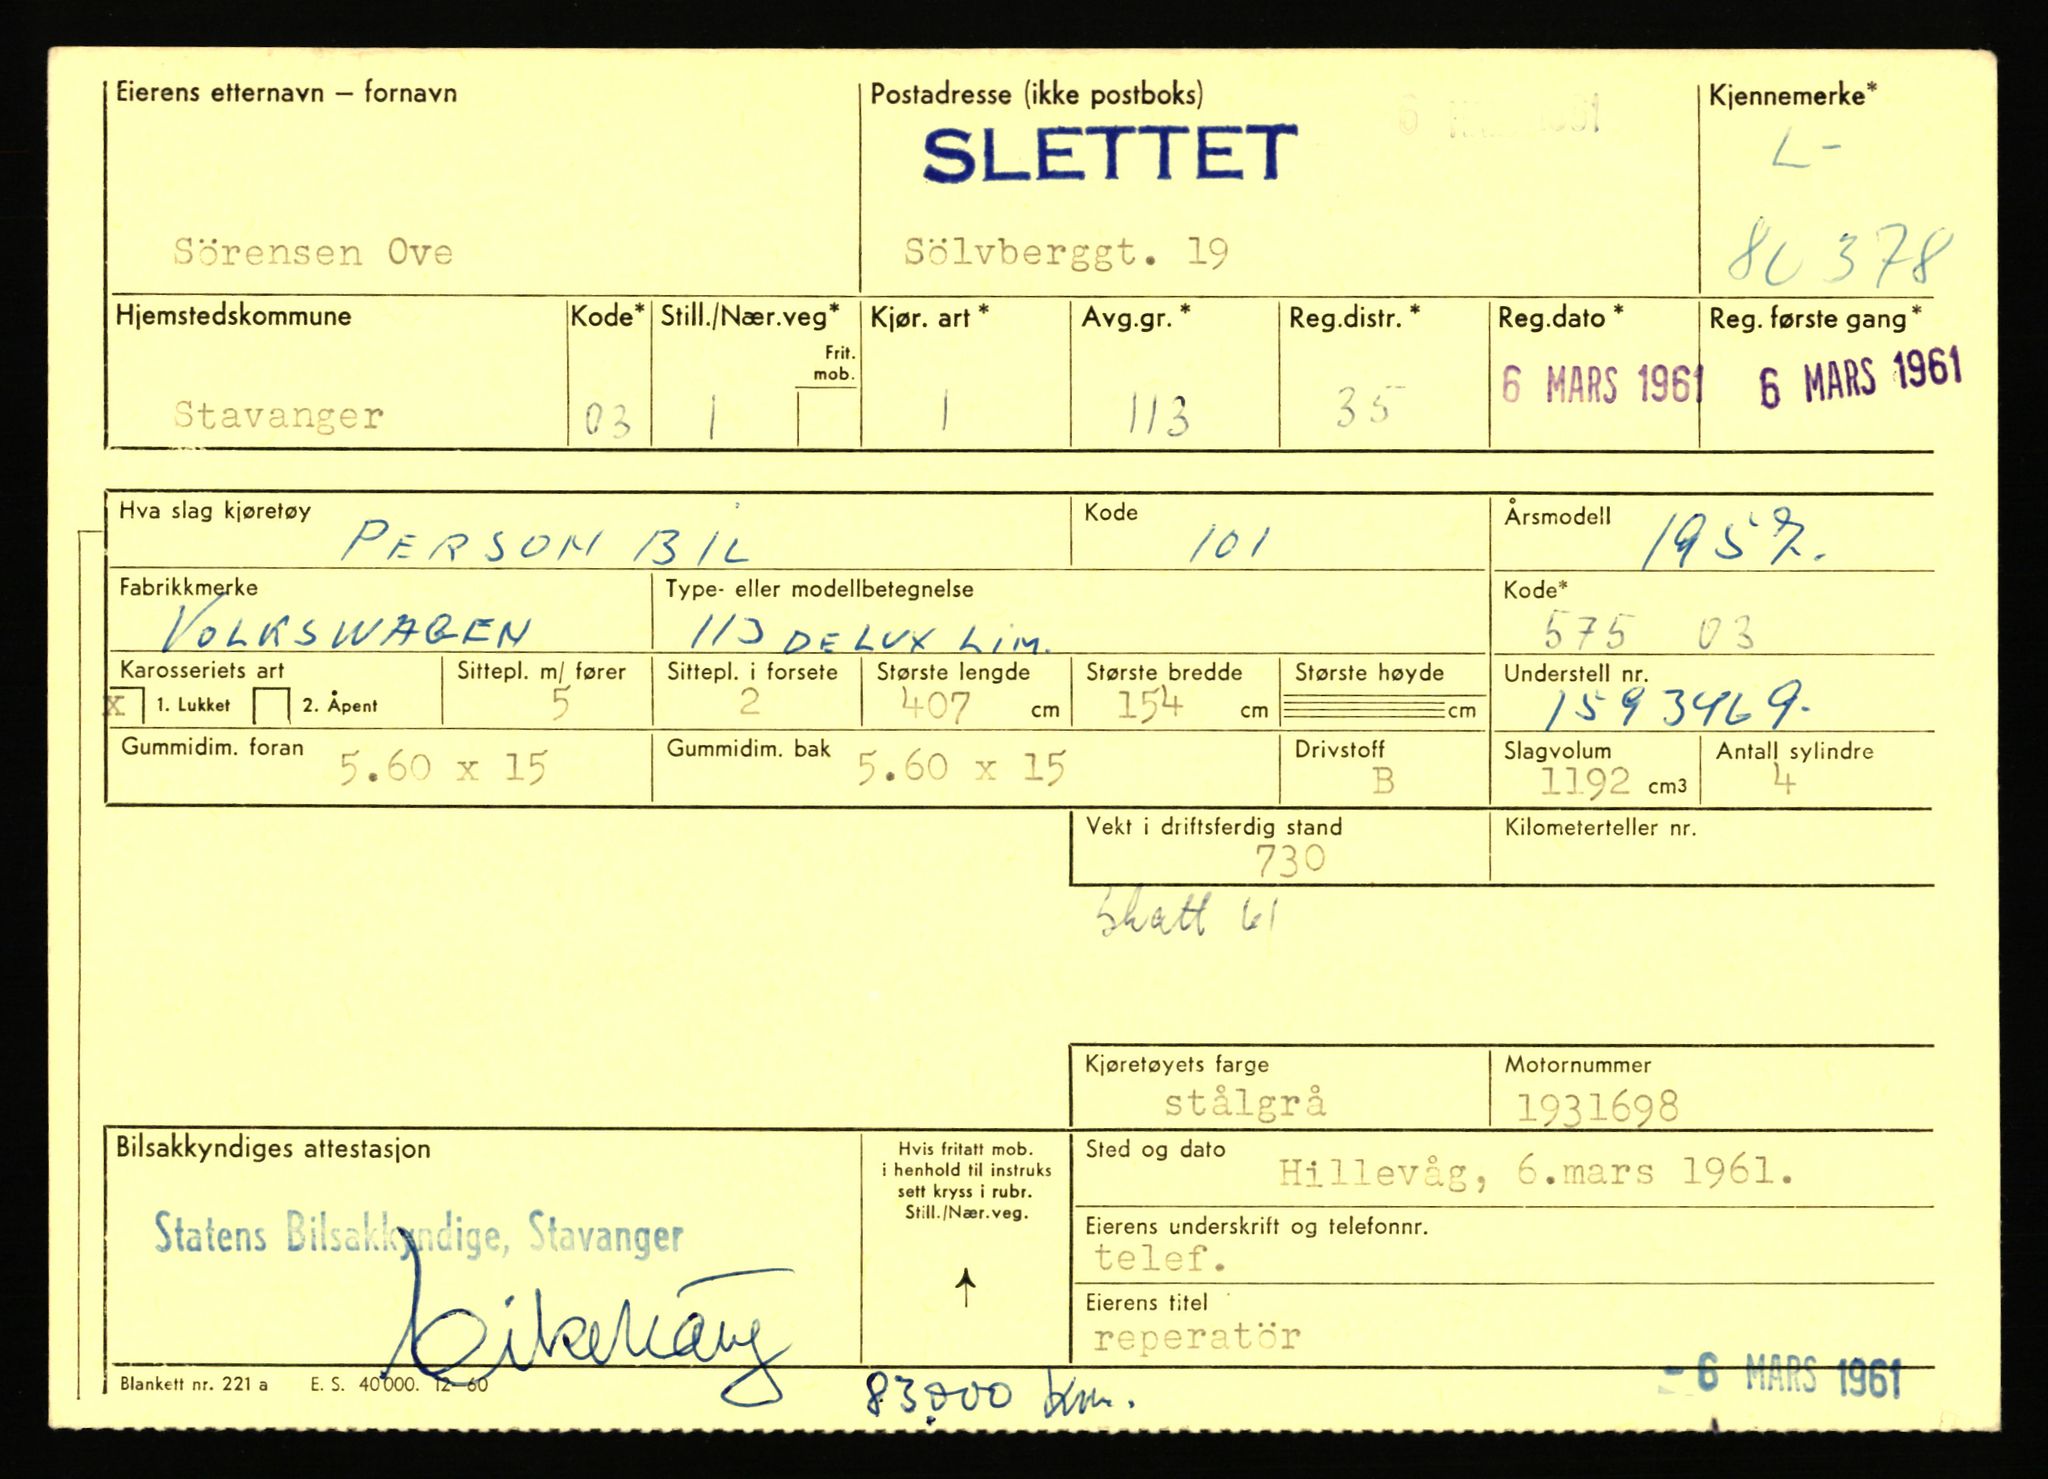 Eierens etternavn — fornavn
Postadresse (ikke postboks)
Kjennemerke*
SLETTET
L-
Sörensen Ove
Sölvberggt. 19
80378
Hjemstedskommune
Kode*
Still./Nær.veg*
Frit. mob.
Kjør. art *
Avg.gr. *
Reg.distr. *
Reg.dato *
Reg. første gang*
Stavanger
03
1
1
113
35
6 MARS 1961
6 MARS 1961
Hva slag kjøretøy
PERSON BIL
Kode
101
Årsmodell
1957.
Fabrikkmerke
VOLKSWAGEN
Type- eller modellbetegnelse
113 DE LUX LIM.
Kode*
575 03
Karosseriets art
x 1. Lukket 2. Åpent
Sittepl. m/ fører
5
Sittepl. i forsete
2
Største lengde
407 cm
Største bredde
154 cm
Største høyde
cm
Understell nr.
1593469.
Gummidim. foran
5.60 x 15
Gummidim. bak
5.60 x 15
Drivstoff
B
Slagvolum
1192 cm3
Antall sylindre
4
Vekt i driftsferdig stand
730
Kilometerteller nr.
Skatt 61
Kjøretøyets farge
stålgrå
Motornummer
1931698
Bilsakkyndiges attestasjon
Statens Bilsakkyndige, Stavanger
Hvis fritatt mob.
i henhold til instruks
sett kryss i rubr.
Still./Nær.veg.
Sted og dato
Hillevåg, 6.mars 1961.
Eierens underskrift og telefonnr.
telef.
Eierens titel
reperatör
- 6 MARS 1961
Blankett nr. 221 a E. S. 40 000. 12-60
83.000 km.